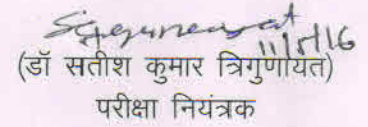 11/5/16
(डॉ सतीश कुमार त्रिगुणायत)
परीक्षा नियंत्रक